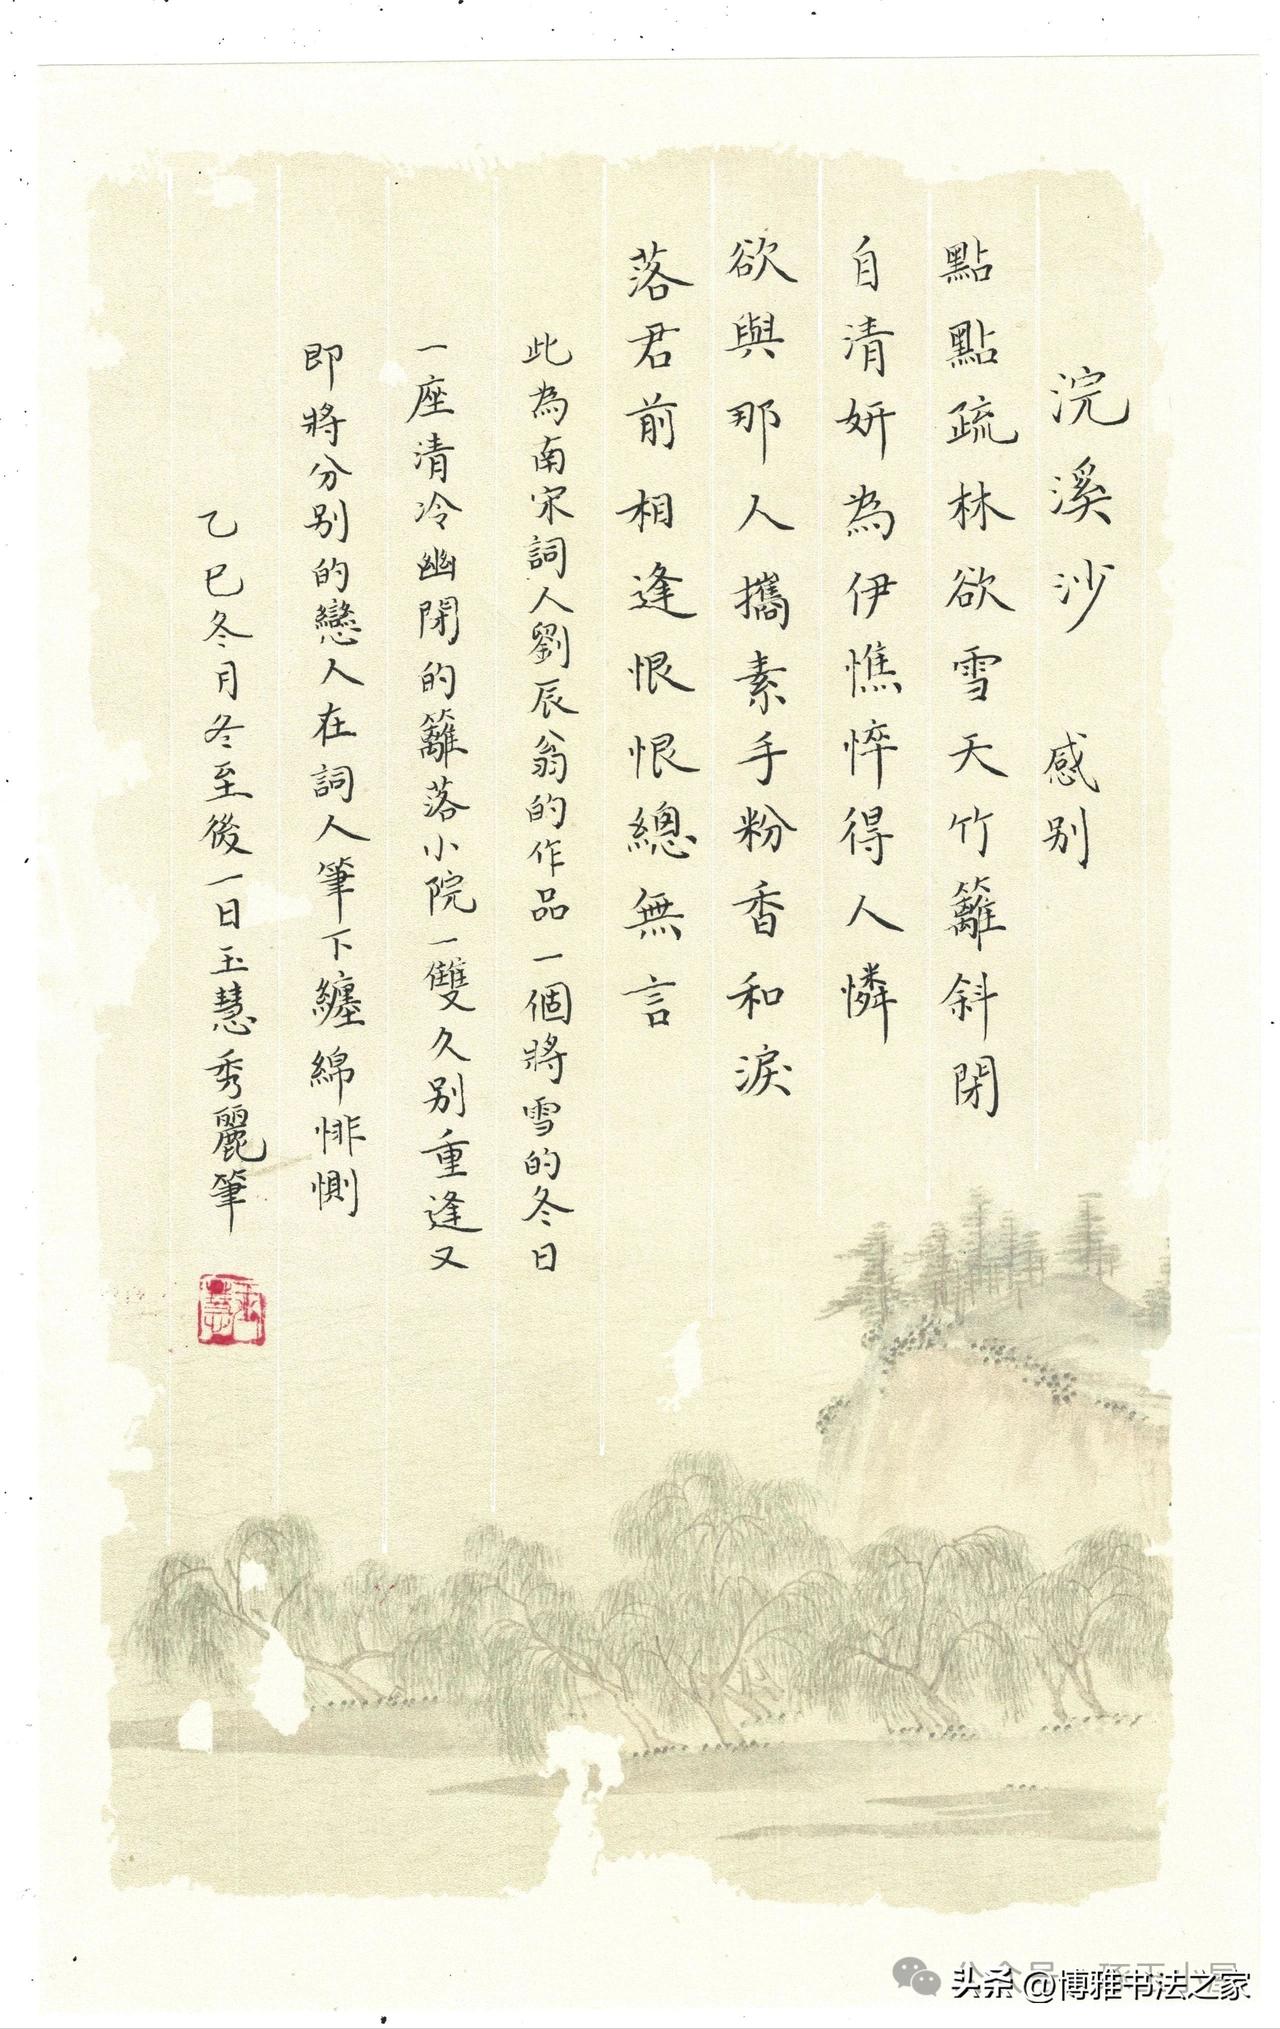 浣溪沙　感别
點點疏林欲雪天竹籬斜閉
自清妍為伊憔悴得人憐
欲與那人攜素手粉香和淚
落君前相逢恨恨總無言
此為南宋詞人劉辰翁的作品一個將雪的冬日
一座清冷幽閉的籬落小院一雙久别重逢又
即將分别的戀人在詞人筆下纏綿悱惻
乙巳冬月冬至後一日玉慧秀麗筆
头条 @博雅书法之家